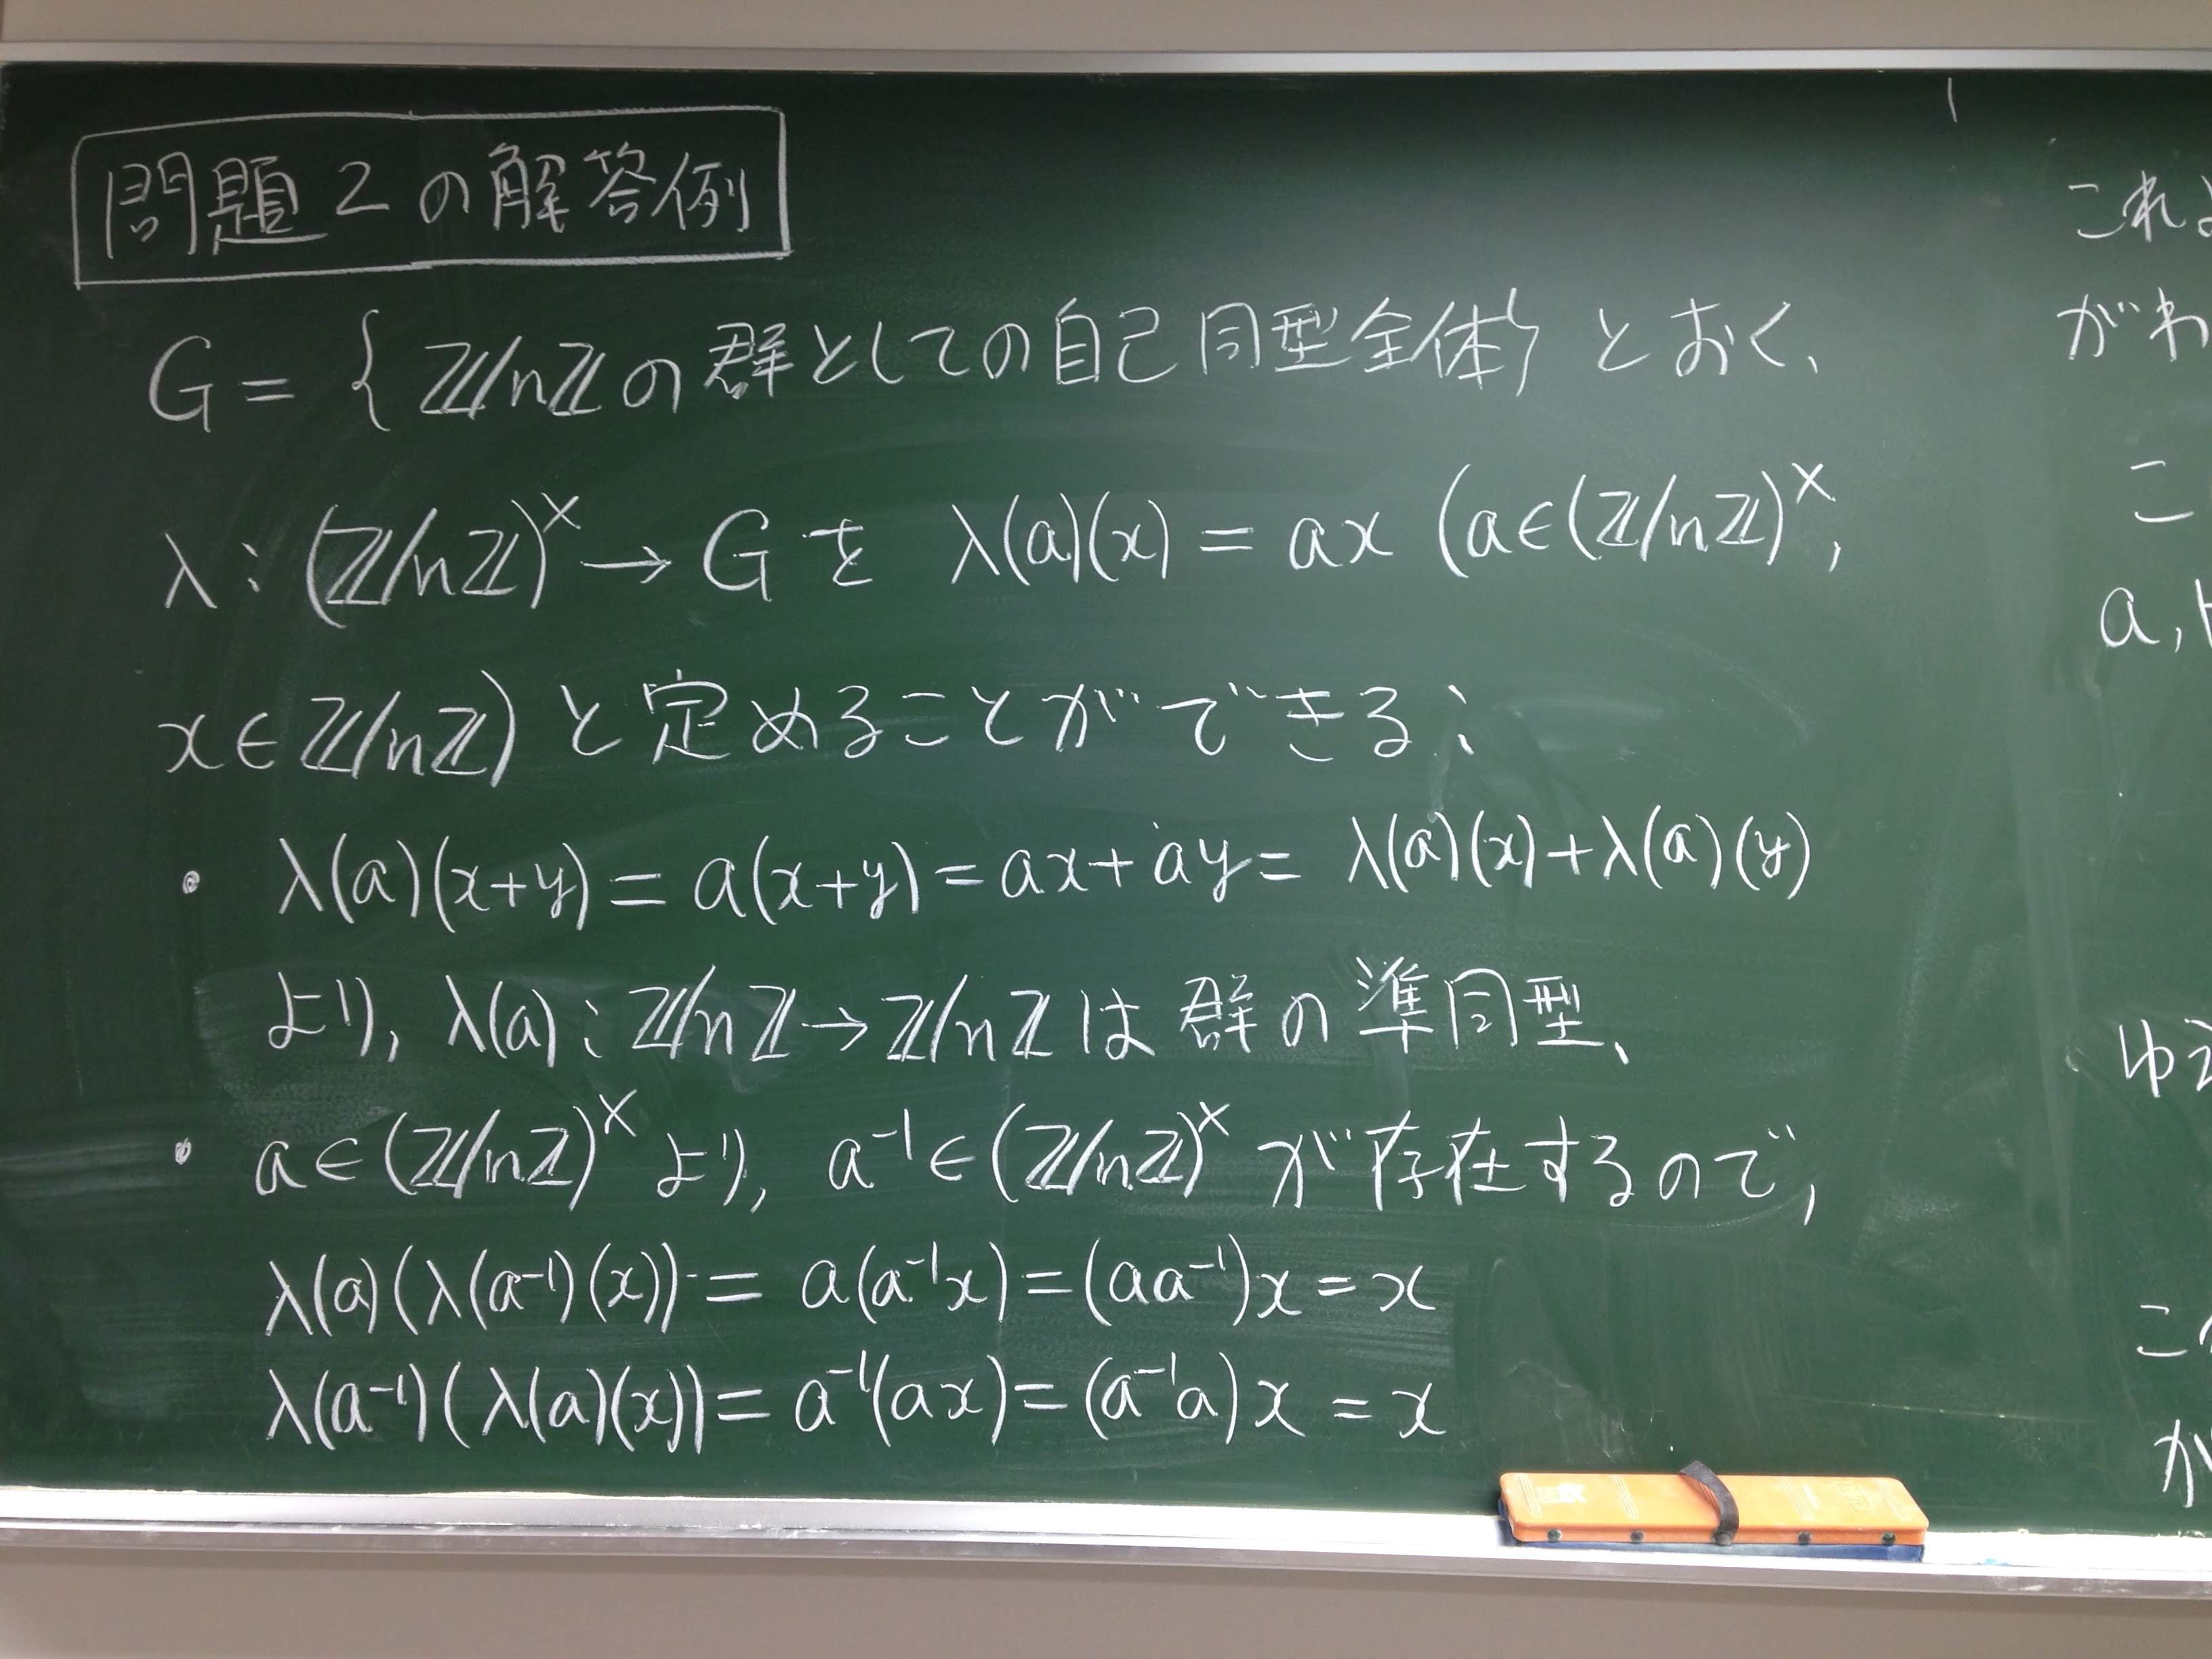 問題2の解答例
G = { ℤ/nℤの群としての自己同型全体} とおく、
λ : (ℤ/nℤ)^× → G を λ(a)(x) = ax (a∈(ℤ/nℤ)^×,
x∈ℤ/nℤ) と定めることができる:
・ λ(a)(x+y) = a(x+y) = ax + ay = λ(a)(x)+λ(a)(y)
より, λ(a) : ℤ/nℤ → ℤ/nℤ は 群の準同型、
・ a∈(ℤ/nℤ)^× より, a⁻¹∈(ℤ/nℤ)^× が存在するので,
λ(a)(λ(a⁻¹)(x)) = a(a⁻¹x) = (aa⁻¹)x = x
λ(a⁻¹)(λ(a)(x)) = a⁻¹(ax) = (a⁻¹a)x = x
これ
がわ
こ
a,
ゆ
こ
が